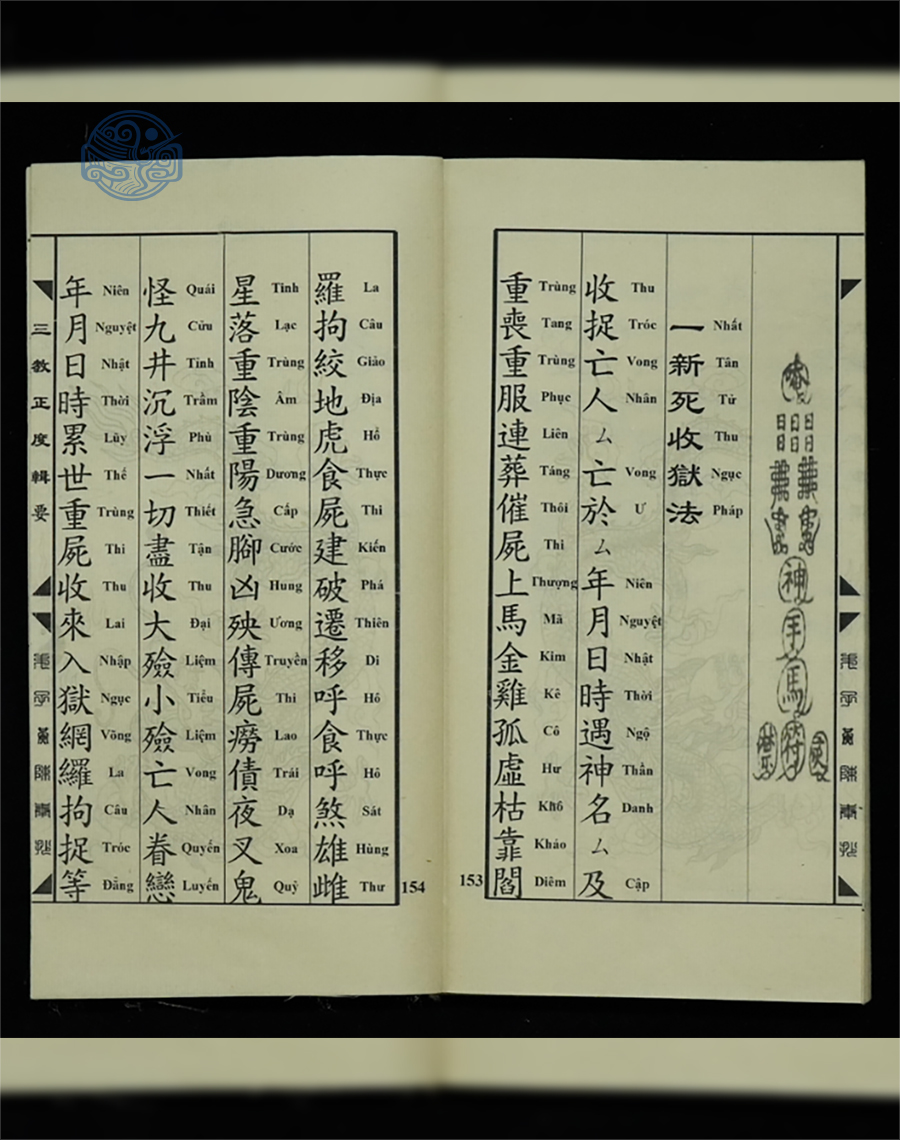 一新死收獄法
Nhất Tân Tử Thu Ngục Pháp
收捉亡人厶亡於厶年月日時遇神名厶及
Thu Tróc Vong Nhân Vong Ư Niên Nguyệt Nhật Thời Ngộ Thần Danh Cập
重喪重服連葬催屍上馬金雞孤虛枯靠閻
Trùng Tang Trùng Phục Liên Táng Thôi Thi Thượng Mã Kim Kê Cô Hư Khô Kháo Diêm
153
羅拘絞地虎食屍建破遷移呼食呼煞雄雌
La Câu Giảo Địa Hổ Thực Thi Kiến Phá Thiên Di Hô Thực Hô Sát Hùng Thư
星落重陰重陽急腳凶殃傳屍癆債夜叉鬼
Tinh Lạc Trùng Âm Trùng Dương Cấp Cước Hung Ương Truyền Thi Lao Trái Dạ Xoa Quỷ
怪九井沉浮一切盡收大殮小殮亡人眷戀
Quái Cửu Tỉnh Trầm Phù Nhất Thiết Tận Thu Đại Liệm Tiểu Liệm Vong Nhân Quyến Luyến
年月日時累世重屍收來入獄網羅拘捉等
Niên Nguyệt Nhật Thời Lũy Thế Trùng Thi Thu Lai Nhập Ngục Võng La Câu Tróc Đẳng
三教正度輯要
154